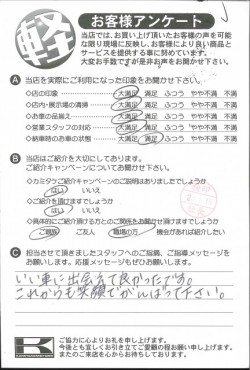 軽
お客様アンケート
当店では、お買い上げ頂いたお客様の声を可能
な限り現場に反映し、お客様により良い商品と
サービスを提供する事に努めています。
大変お手数ですが是非お声をお聞かせ下さい。
A 当店を実際にご利用になった印象をお聞かせ下さい。
◇店の印象 大満足 満足 ふつう やや不満 不満
◇店内・展示場の清掃 大満足 満足 ふつう やや不満 不満
◇お車の品揃え 大満足 満足 ふつう やや不満 不満
◇営業スタッフの対応 大満足 満足 ふつう やや不満 不満
◇納車時のお車の状態 大満足 満足 ふつう やや不満 不満
B 当店はご紹介を大切にしております。
ご紹介キャンペーンについてお聞かせ下さい。
◇カミタケご紹介キャンペーンのご説明はありましたでしょうか
はい いいえ
◇ご紹介を頂けますでしょうか
はい いいえ
◇具体的にご紹介頂ける方とのご関係をお聞かせ頂けますでしょうか
ご親族 ご友人 職場の方 機会があれば紹介したい
C 担当させて頂きましたスタッフへのご指摘、ご指導メッセージを
お願いします。応援メッセージもぜひお願いします。
いい車に出会えて良かったです。
これからも笑顔でがんばって下さい。
K
ご協力に心よりお礼を申し上げます。
今後とも宜しくお引き立てご愛顧の程お願い申し上げます。
またのご来店を心からお待ちしております。